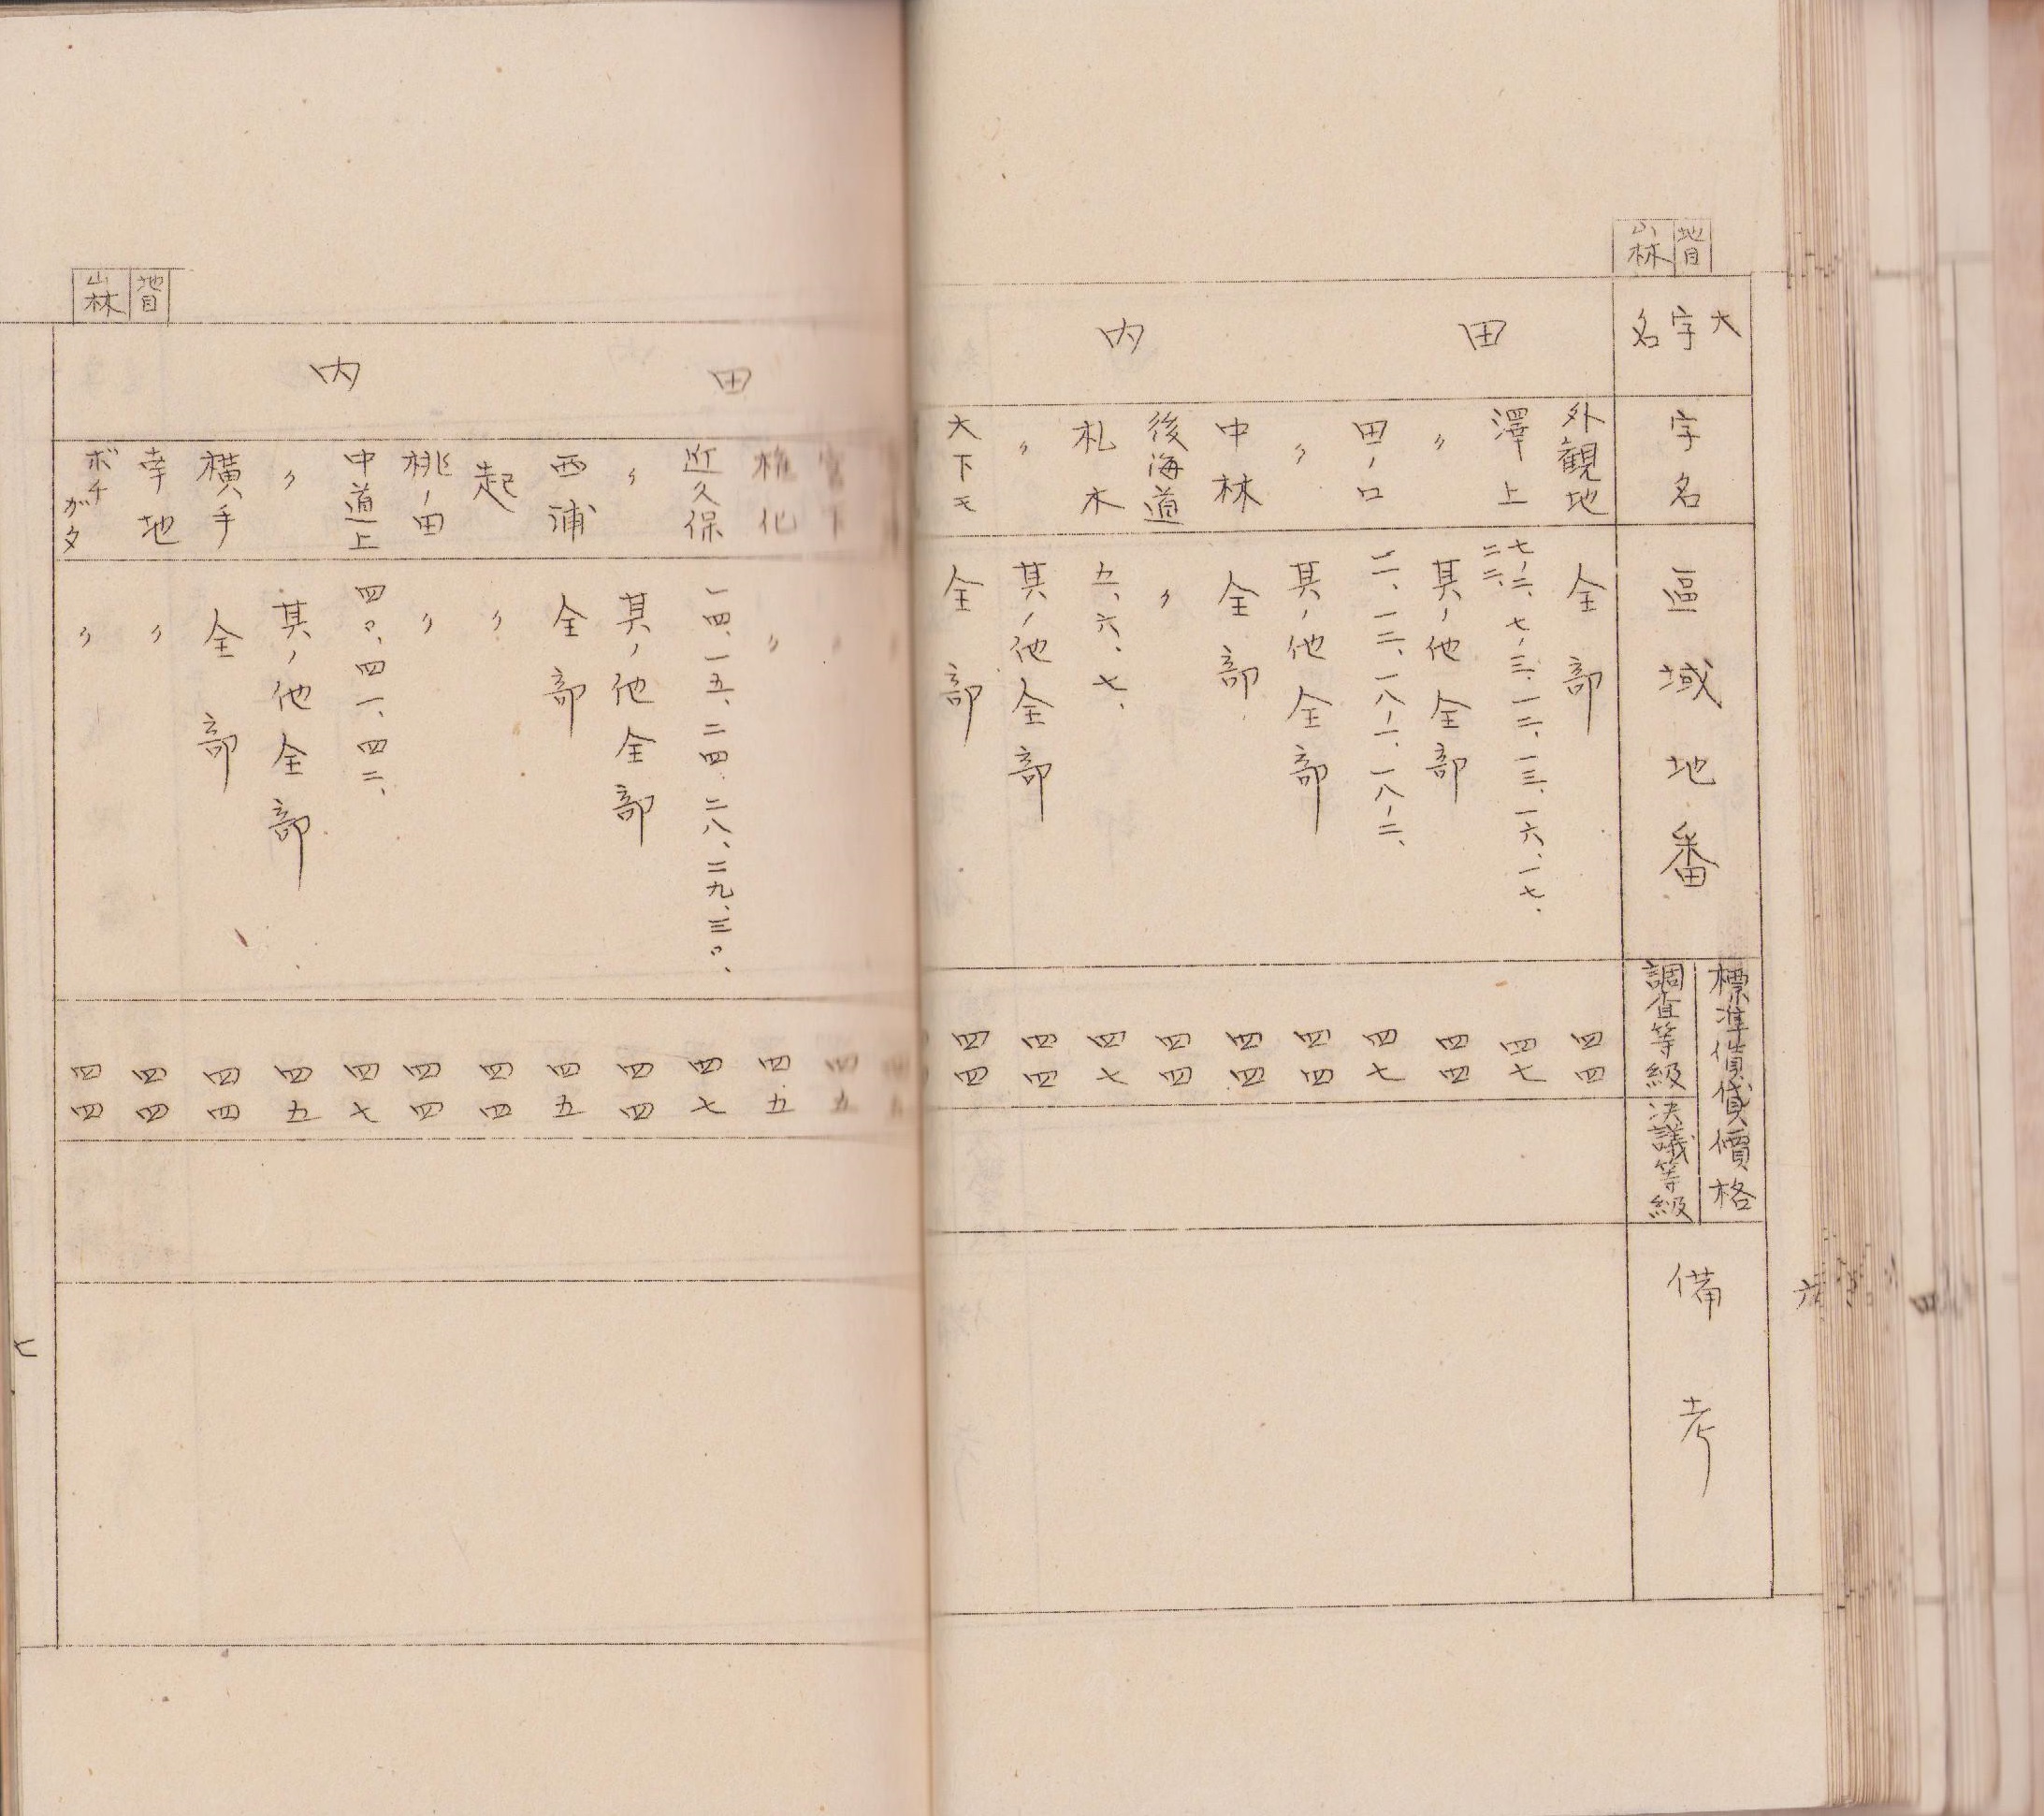 地目
山林
大字名
字名
區域地番
標準賃貸價格
調査等級
決議等級
備考
六
四
田内
外觀地 全部 四四
澤上 七ノ二、七ノ三、一二、一三、一六、一七、二二、 四七
〃 其ノ他全部 四四
田ノ口 一二、一八ノ一、一八ノ二、 四七
〃 其ノ他全部 四四
中林 全部 四四
後海道 〃 四四
札木 五、六、七、 四七
〃 其ノ他全部 四四
大下モ 全部 四四
地目
山林
田内
宮下 〃 四五
〃 四五
近久保 一四、一五、二四、二八、二九、三〇、 四七
〃 其ノ他全部 四四
西浦 全部 四五
起 〃 四四
桃ノ田 〃 四四
中道上 四〇、四一、四二、 四七
〃 其ノ他全部 四五
横手 全部 四四
幸地 〃 四四
ボチガタ 〃 四四
七